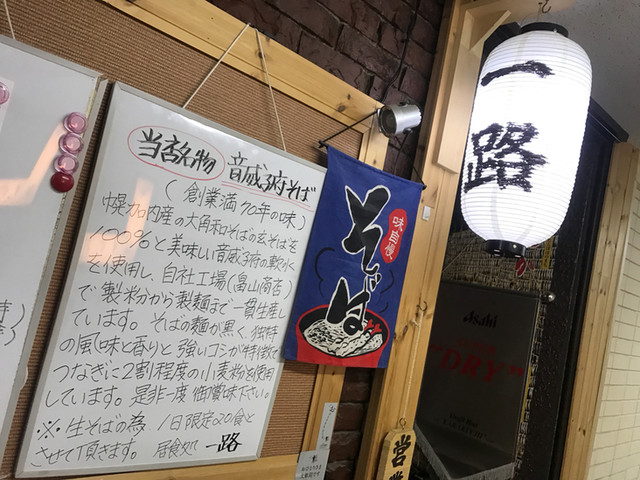 当店名物 音威子府そば
(創業満70年の味)
幌加内産の大角和そばの玄そばを
100%と美味しい音威子府の軟水
を使用し、自社工場(畠山商店)
で製粉から製麺まで一貫生産し
ています。そばの麺が黒く、独特
の風味と香りと強いコシが特徴で
つなぎに2割程度の小麦粉を使用
しています。是非一度御賞味下さい。
※生そばの為 1日限定20食と
させて頂きます。 居食処 一路
味自慢
そば
一路
Asahi
DRY
営業